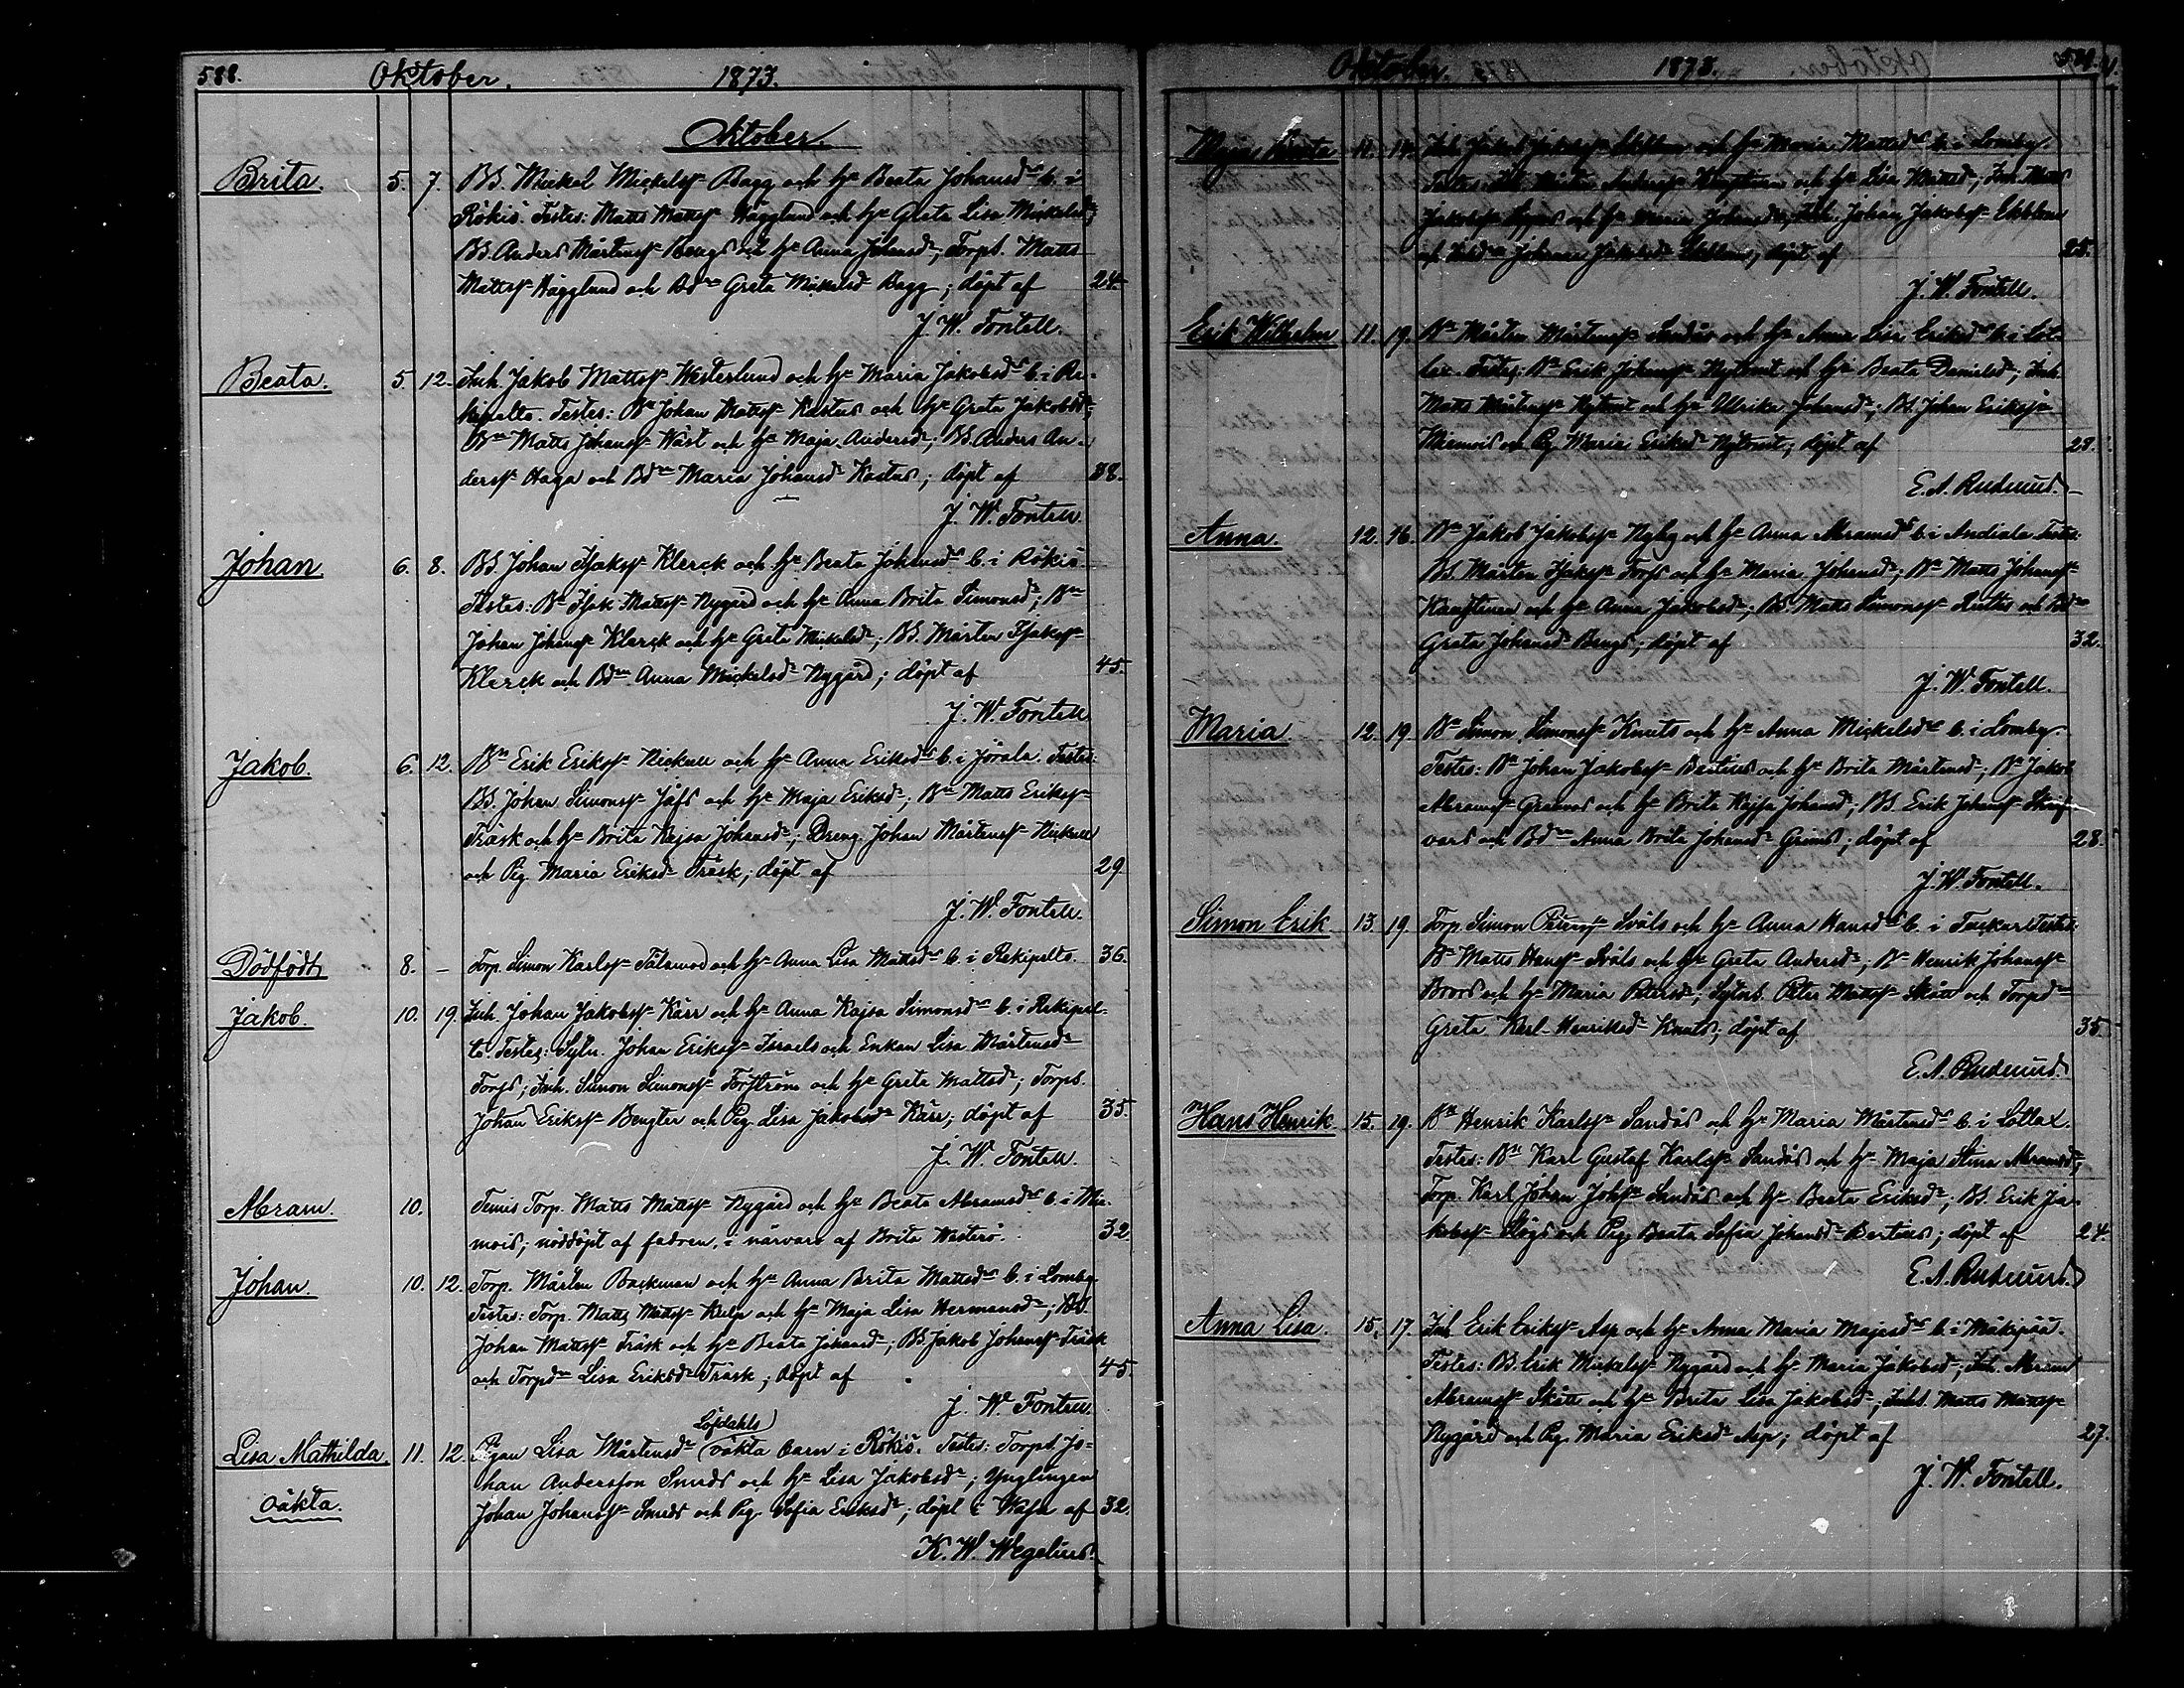 588. Oktober. 1873.
Oktober.
Brita. 5. 7. BS. Mickel Mickelss. Bagg och h. Beata Johansdr b. i
Rökiö. Testes: Matts Mattss. Hägglund och h. Greta Lisa Mickelsdr;
BS. Anders Mårtenss. Bengs och h. Anna Johansdr; Torps. Matts
Mattss. Hägglund och Bdr Greta Mickelsdr Bagg; döpt af 24.
J. W. Fontell.
Beata. 5. 12. Inh. Jakob Mattss. Westerlund och h. Maria Jakobsdr b. i Re-
kipelto. Testes: Bn Johan Mattss. Kastus och h. Greta Jakobsdr;
Bn Matts Johanss. Wäst och h. Maja Andersdr; BS. Anders An-
derss. Haga och Bdr Maria Johansdr Kastus; döpt af 38.
J. W. Fontell.
Johan 6. 8. BS. Johan Isakss. Klerck och h. Beata Johansdr b. i Rökiö.
Testes: Bn Isak Mattss. Nygård och h. Anna Brita Simonsdr; Bn
Johan Johanss. Klerck och h. Greta Mickelsdr; BS. Mårten Isakss.
Klerck och Bdr Anna Mickelsdr Nygård; döpt af 45.
J. W. Fontell
Jakob. 6. 12. Bn Erik Erikss. Nickull och h. Anna Eriksdr b. i Jörala. Testes:
BS. Johan Simonss. Jåfs och h. Maja Eriksdr; Bn Matts Erikss.
Träsk och h. Brita Kajsa Johansdr; Dreng. Johan Mårtenss. Nickull
och Pig. Maria Eriksdr Träsk; döpt af 29
J. W. Fontell.
Dödfödt 8. – Torp. Simon Karlss. och h. Anna Lisa Mattsdr b. i Rekipelto. 36.
Jakob. 10. 19. Inh. Johan Jakobss. Kärr och h. Anna Kajsa Simonsdr b. i Rekipel-
to. Testes: Sytn. Johan Erikss. Israels och Enkan Lisa Mårtensdr
Torfs; Inh. Simon Simonss. Forsström och h. Greta Mattsdr; Torps.
Johan Erikss. Bengter och Pig. Lisa Jakobsdr Kärr; döpt af 35.
J. W. Fontell.
Abram. 10. Femis Torp. Matts Mattss. Nygård och h. Beata Abramsdr b. i Mie-
mois; nöddöpt af fadren, i närvaro af Brita Westerö. 32
Johan. 10. 12. Torp. Mårten Backman och h. Anna Brita Mattsdr b. i Lomby.
Testes: Torp. Matts Mattss. Kulp och h. Maja Lisa Hermansdr; BS.
Johan Mattss. Träsk och h. Beata Johansdr; BS. Jakob Johanss. Träsk
och Torpdr Lisa Eriksdr Träsk; döpt af 45.
J. W. Fontell.
Löfdahls
Lisa Mathilda. 11. 12. Pigan Lisa Mårtensdr oäkta barn i Rökiö. Testes: Torps. Jo-
oäkta. han Andersson Smeds och h. Lisa Jakobsdr; Ynglingen
Johan Johanss. Smeds och Pig. Sofia Eriksdr; döpt i Wasa af 32.
K. W. Wegelius.
Oktober. 1873. 589.
Maja Greta 11. 14. Inh. Jakob Jakobss. Ekblom och h. Maria Mattsdr b. i Lomby.
Testes: Inh. Mårten Anderss. och h. Lisa Mattsdr; Inh. Matts
Jakobss. och h. Maria Johansdr; Johan Jakobss. Ekblom
och Johanna Jakobsdr Ekblom; döpt af 25.
J. W. Fontell.
Erik Wilhelm 11. 19. Bn Mårten Mårtenss. Sandås och h. Anna Lisa Eriksdr b. i Lot-
lax. Testes: Bn Erik Johanss. Nytomt och h. Beata Danielsdr; Inh.
Matts Mårtenss. Nytomt och h. Ulrika Johansdr; BS. Johan Erikss.
Miemois och Pig. Maria Eriksdr Nytomt; döpt af 28.
E. A. Rudnäs.
Anna. 12. 16. Bn Jakob Jakobss. Nyby och h. Anna Abramsdr b. i Andiala. Testes:
BS. Mårten Isakss. Torfs och h. Maria Johansdr; Bn Matts Johanss.
och h. Anna Jakobsdr; BS. Matts Simonss. och Bdr
Greta Johansdr Bengs; döpt af 32.
J. W. Fontell.
Maria 12. 19. Bn Simon Simonss. Knuts och h. Anna Mickelsdr b. i Lomby.
Testes: Bn Johan Jakobss. Bertius och h. Brita Mårtensdr; Bn Jakob
Abramss. och h. Brita Kajsa Johansdr; BS. Erik Johanss. Skrif-
vars och Bdr Anna Brita Johansdr Grims; döpt af 28.
J. W. Fontell.
Simon Erik 13. 19. Torp. Simon Peterss. Svåls och h. Anna Hansdr b. i Tuckur. Testes:
Bn Matts Hanss. Svåls och h. Greta Andersdr; Bn Henrik Johanss.
Brors och h. Maria Petersdr; Sytns. Peter Mattss. Skått och Torpdr
Greta Karl-Henriksdr Knuts; döpt af 35.
E. A.
Hans Henrik. 15. 19. Bn Henrik Karlss. Sandås och h. Maria Mårtensdr b. i Lotlax.
Testes: Bn Karl Gustaf Karlss. Sandås och h. Maja Stina Abramsdr;
Torp. Karl Johan Johss. Sandås och h. Beata Eriksdr; BS. Erik Ja-
kobss. och Pig. Beata Sofia Johansdr Bertius; döpt af 24.
E. A.
Anna Lisa. 15. 17. Inh. Erik Erikss. Asp och h. Anna Maria Majasdr b. i Mäkipää.
Testes: BS. Erik Mickelss. Nygård och h. Maria Jakobsdr; Inh. Abram
Abramss. Skått och h. Brita Lisa Jakobsdr; Inhs. Matts Mattss.
Nygård och Pig. Maria Eriksdr Asp; döpt af 27.
J. W. Fontell.